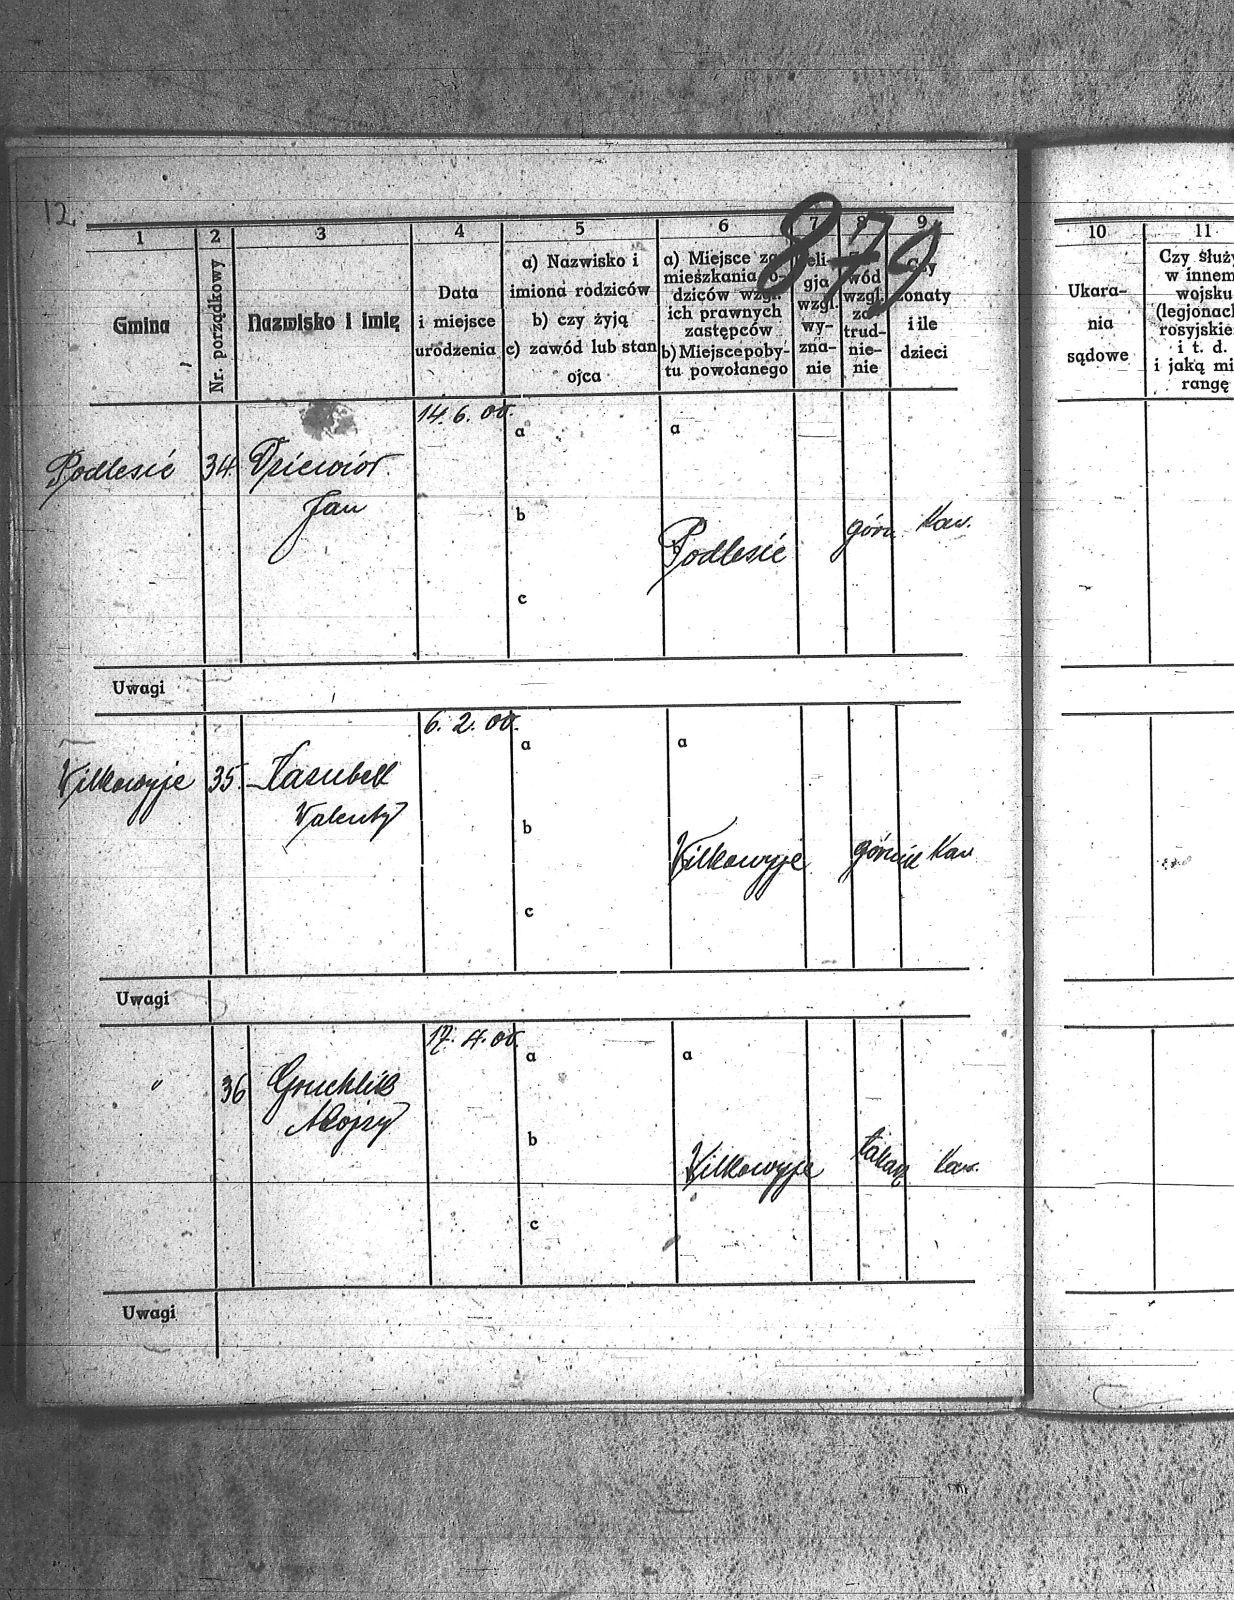 12.
879
1 2 3 4 5 6 7 8 9 10 11
Gmina
Nr. porządkowy
Nazwisko i imię
Data
i miejsce
urodzenia
a) Nazwisko i
imiona rodziców
b) czy żyją
c) zawód lub stan
ojca
a) Miejsce za-
mieszkania ro-
dziców wzgl.
ich prawnych
zastępców
b) Miejsce poby-
tu powołanego
reli-
gja
wzgl.
wy-
zna-
nie
wód
wzgl.
za-
trud-
nie-
nie
Czy
żonaty
i ile
dzieci
Ukara-
nia
sądowe
Czy służy
w innem
wojsku
(legjonach
rosyjskie
i t. d.
i jaką mi
rangę
14. 6. 00.
a a
Podlesie 34. Dziewior
Jan
b Podlesie górn. Kaw.
c
Uwagi
6. 2. 00.
a a
Wilkowyje 35. Kasubek
Walenty
b Wilkowyje górnik Kaw
c
Uwagi
17. 4. 00.
a a
" 36 Gruchlik
Alojzy
b Wilkowyje Kaw.
c
Uwagi